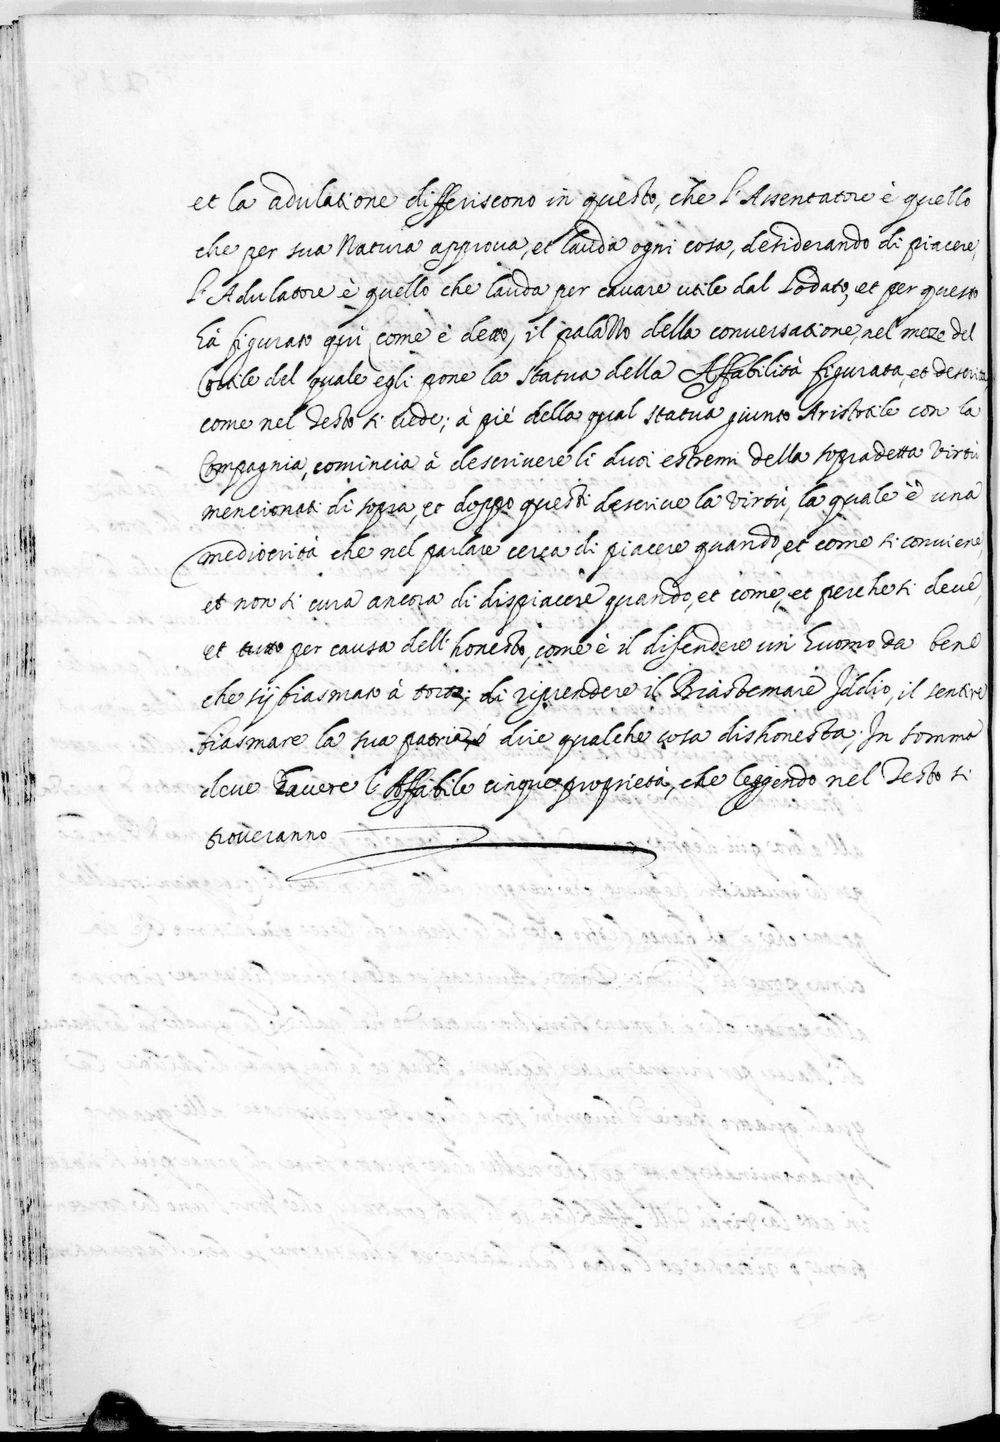 et la adulatione differiscono in questo, che l'Assentatore è quello
che per sua Natura approva, et lauda ogni cosa, desiderando di piacere,
l'Adulatore è quello che lauda per cavare utile dal Lodato, et per questo
hà figurato qui come è detto, il palazzo della conversatione, nel meze del
Cortile del quale egli pone la statua della Affabilità figurata, et descritta
come nel Testo si vede; à pié della qual statua giunto Aristotile con la
Compagnia, comincia à descrivere li duoi estremi della sopradetta virtù
mencionati di sopra, et doppo questi descrive la virtù, la quale è una
mediocrità che nel parlare cerca di piacere quando, et come si conviene,
et non si cura ancora di dispiacere quando, et come, et perche si deve,
et tutto per causa dell'honesto, come è il difendere un huomo da bene
che sij biasmato à torto; di riprendere il Biastemare Iddio, il sentire
biasmare la sua patria, ó dire qualche cosa dishonesta; In somma
deve havere l'Affabile cinque proprietà, che leggendo nel Testo si
troveranno